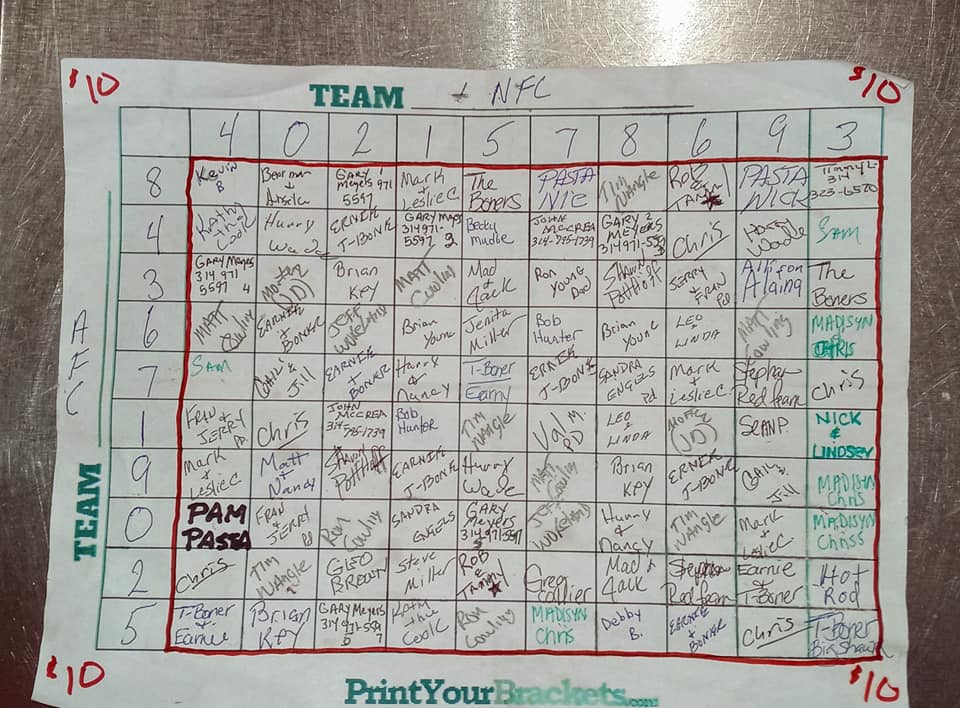 $10
$10
TEAM + NFC
4 0 2 1 5 7 8 6 9 3
AFC
TEAM
8
Kevin B
Bearman +
GARY Meyers 971 5597
Mark + Leslie C
The Boners
PASTA NIC
Tim WANGLE
ROB
PASTA NICK
323-6570
4
Kathy the Cook
Hunny Wade
ERNER T-BONE
GARY Meyers 314 971-5597 2
Becky Mudle
JOHN McCREA 314-795-1739
GARY 2 MEYERS 314 971-55
Chris
Wade
SAM
3
GARY Meyers 314 971 5597 4
Morten (JD)
Brian KPY
MATT Cowling
Mad + Jack
Ron Young Dad
SHAWN POTTHOFF
JERRY + FRAN PD
Allison Alaina
The Boners
6
MATT Cowling
EARNIE + BONER
JEFF
Brian Young
Jenita Miller
Bob Hunter
Brian Young
LEO + LINDA
MATT Cowling
MADISYN CHRIS
7
SAM
CHILI & Jill
EARNER + BONER
Hunny & Nancy
T-Boner Earny
ERNER T-BONE
SANDRA ENGELS Pd
Mark + Leslie C
Stephan Red team
Chris
1
FRAN & JERRY PD
Chris
JOHN McCREA 314-795-1739
Bob Hunter
TIM WANGLE
Val M. PD
LEO & LINDA
Morten (JD)
SEAN P.
NICK & LINDSEY
9
Mark + Leslie C
Matt + Nancy
SHAWN POTTHOFF
EARNIE T-BONE
Hunny Wade
MATT Cowlin
Brian KPY
ERNER T-BONE
CHILI & Jill
MADISYN Chris
0
PAM PASTA
FRAN & JERRY PD
RON Cowling
SANDRA ENGELS
GARY Meyers 314 971-5597 5
JEFF
Hunny & Nancy
TIM WANGLE
Mark + Leslie C
MADISYN Chriss
2
Chris
TIM WANGLE
GLEO BROWN
Steve Miller
ROB & TAMMY
Greg Collier
Mad + Jack
Stephan Red team
Earnie & T-Boner
Hot Rod
5
T-Boner & Earnie
Brian KPY
GARY Meyers 314 971-559 7
Kath the Cook
RON Cowling
MADISYN Chris
Debby B.
EARNER + BONER
Chris
T-Boner Big Shawn
$10
$10
PrintYourBrackets.com